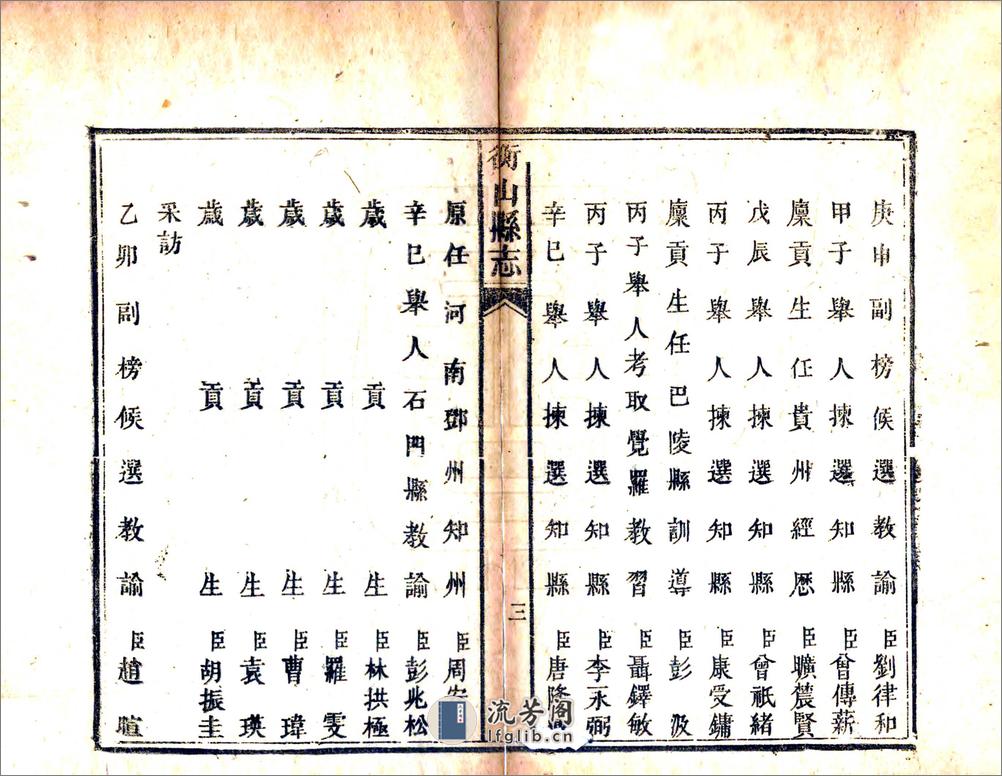 庚申副榜候選教諭臣劉律和
甲子舉人揀選知縣臣曾傳薪
廩貢生任貴州經歷臣曠農賢
戊辰舉人揀選知縣臣曾祇緒
丙子舉人揀選知縣臣康受鏞
廩貢生任巴陵縣訓導臣彭汲
丙子舉人考取覺羅教習臣聶鐸敏
丙子舉人揀選知縣臣李永弼
辛巳舉人揀選知縣臣唐隆
衡山縣志
三
原任河南鄧州知州臣周
辛巳舉人石門縣教諭臣彭兆松
歲貢生臣林拱極
歲貢生臣羅雯
歲貢生臣曹瑋
歲貢生臣袁瑛
歲貢生臣胡振圭
采訪
乙卯副榜候選教諭臣趙暄
流芳阁
lfglib.cn